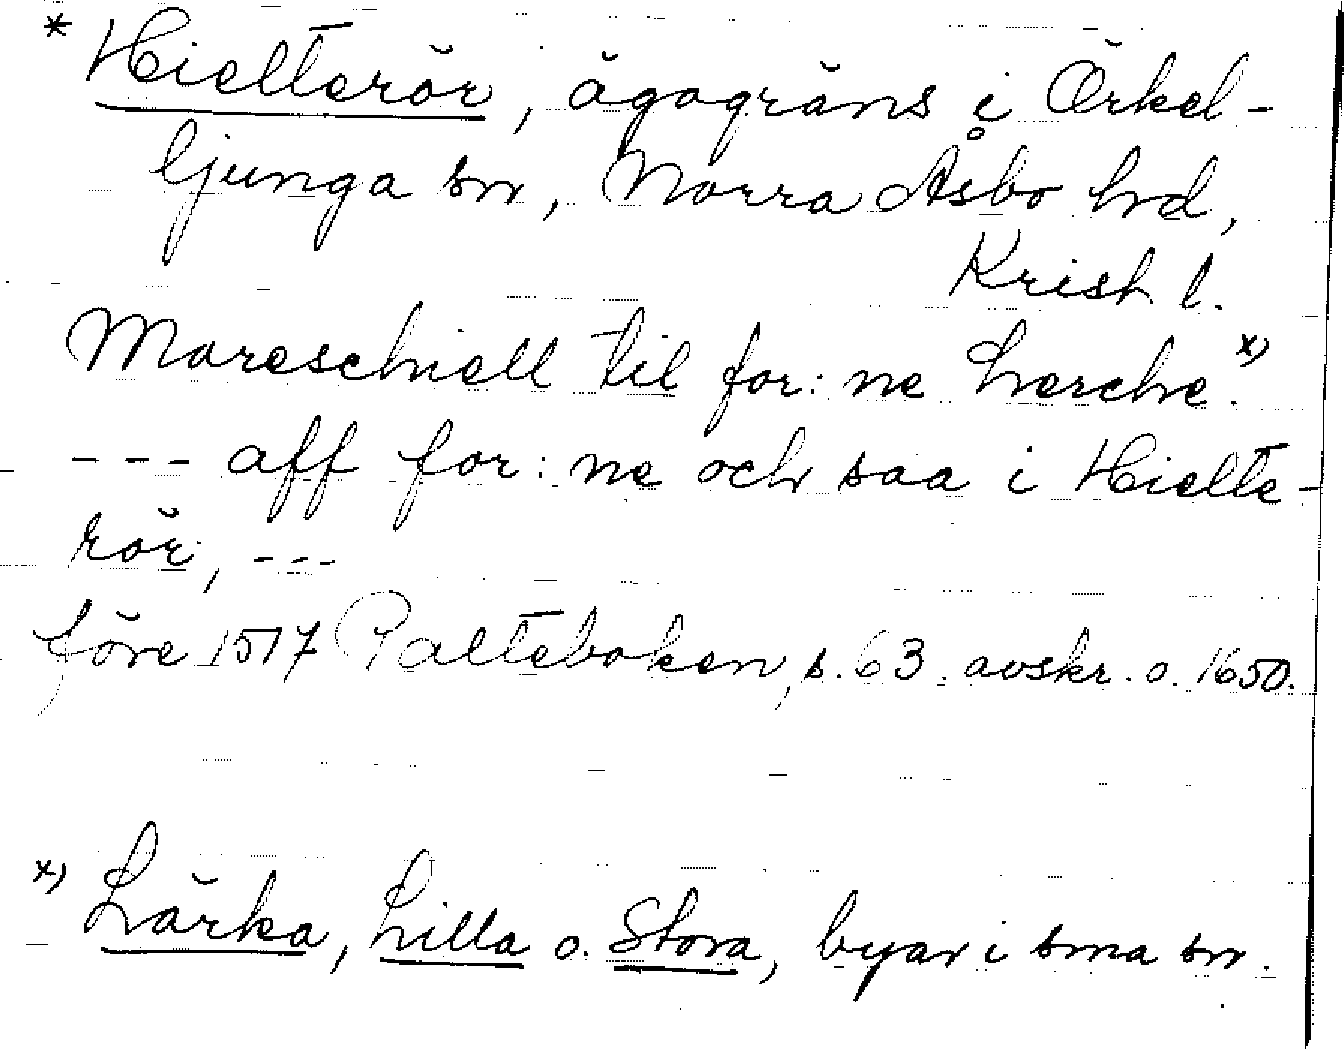 * Hielterör, ägogräns i Örkel-
ljunga sn, Norra Åsbo hd,
Krist. l.
Mareschiell til for: ne Lerche. x)
--- aff for: ne och saa i Hielte-
rör, ---
före 1517 Palteboken, s. 63. avskr. o. 1650.
x) Lärka, Lilla o. Stora, byar i sma sn.